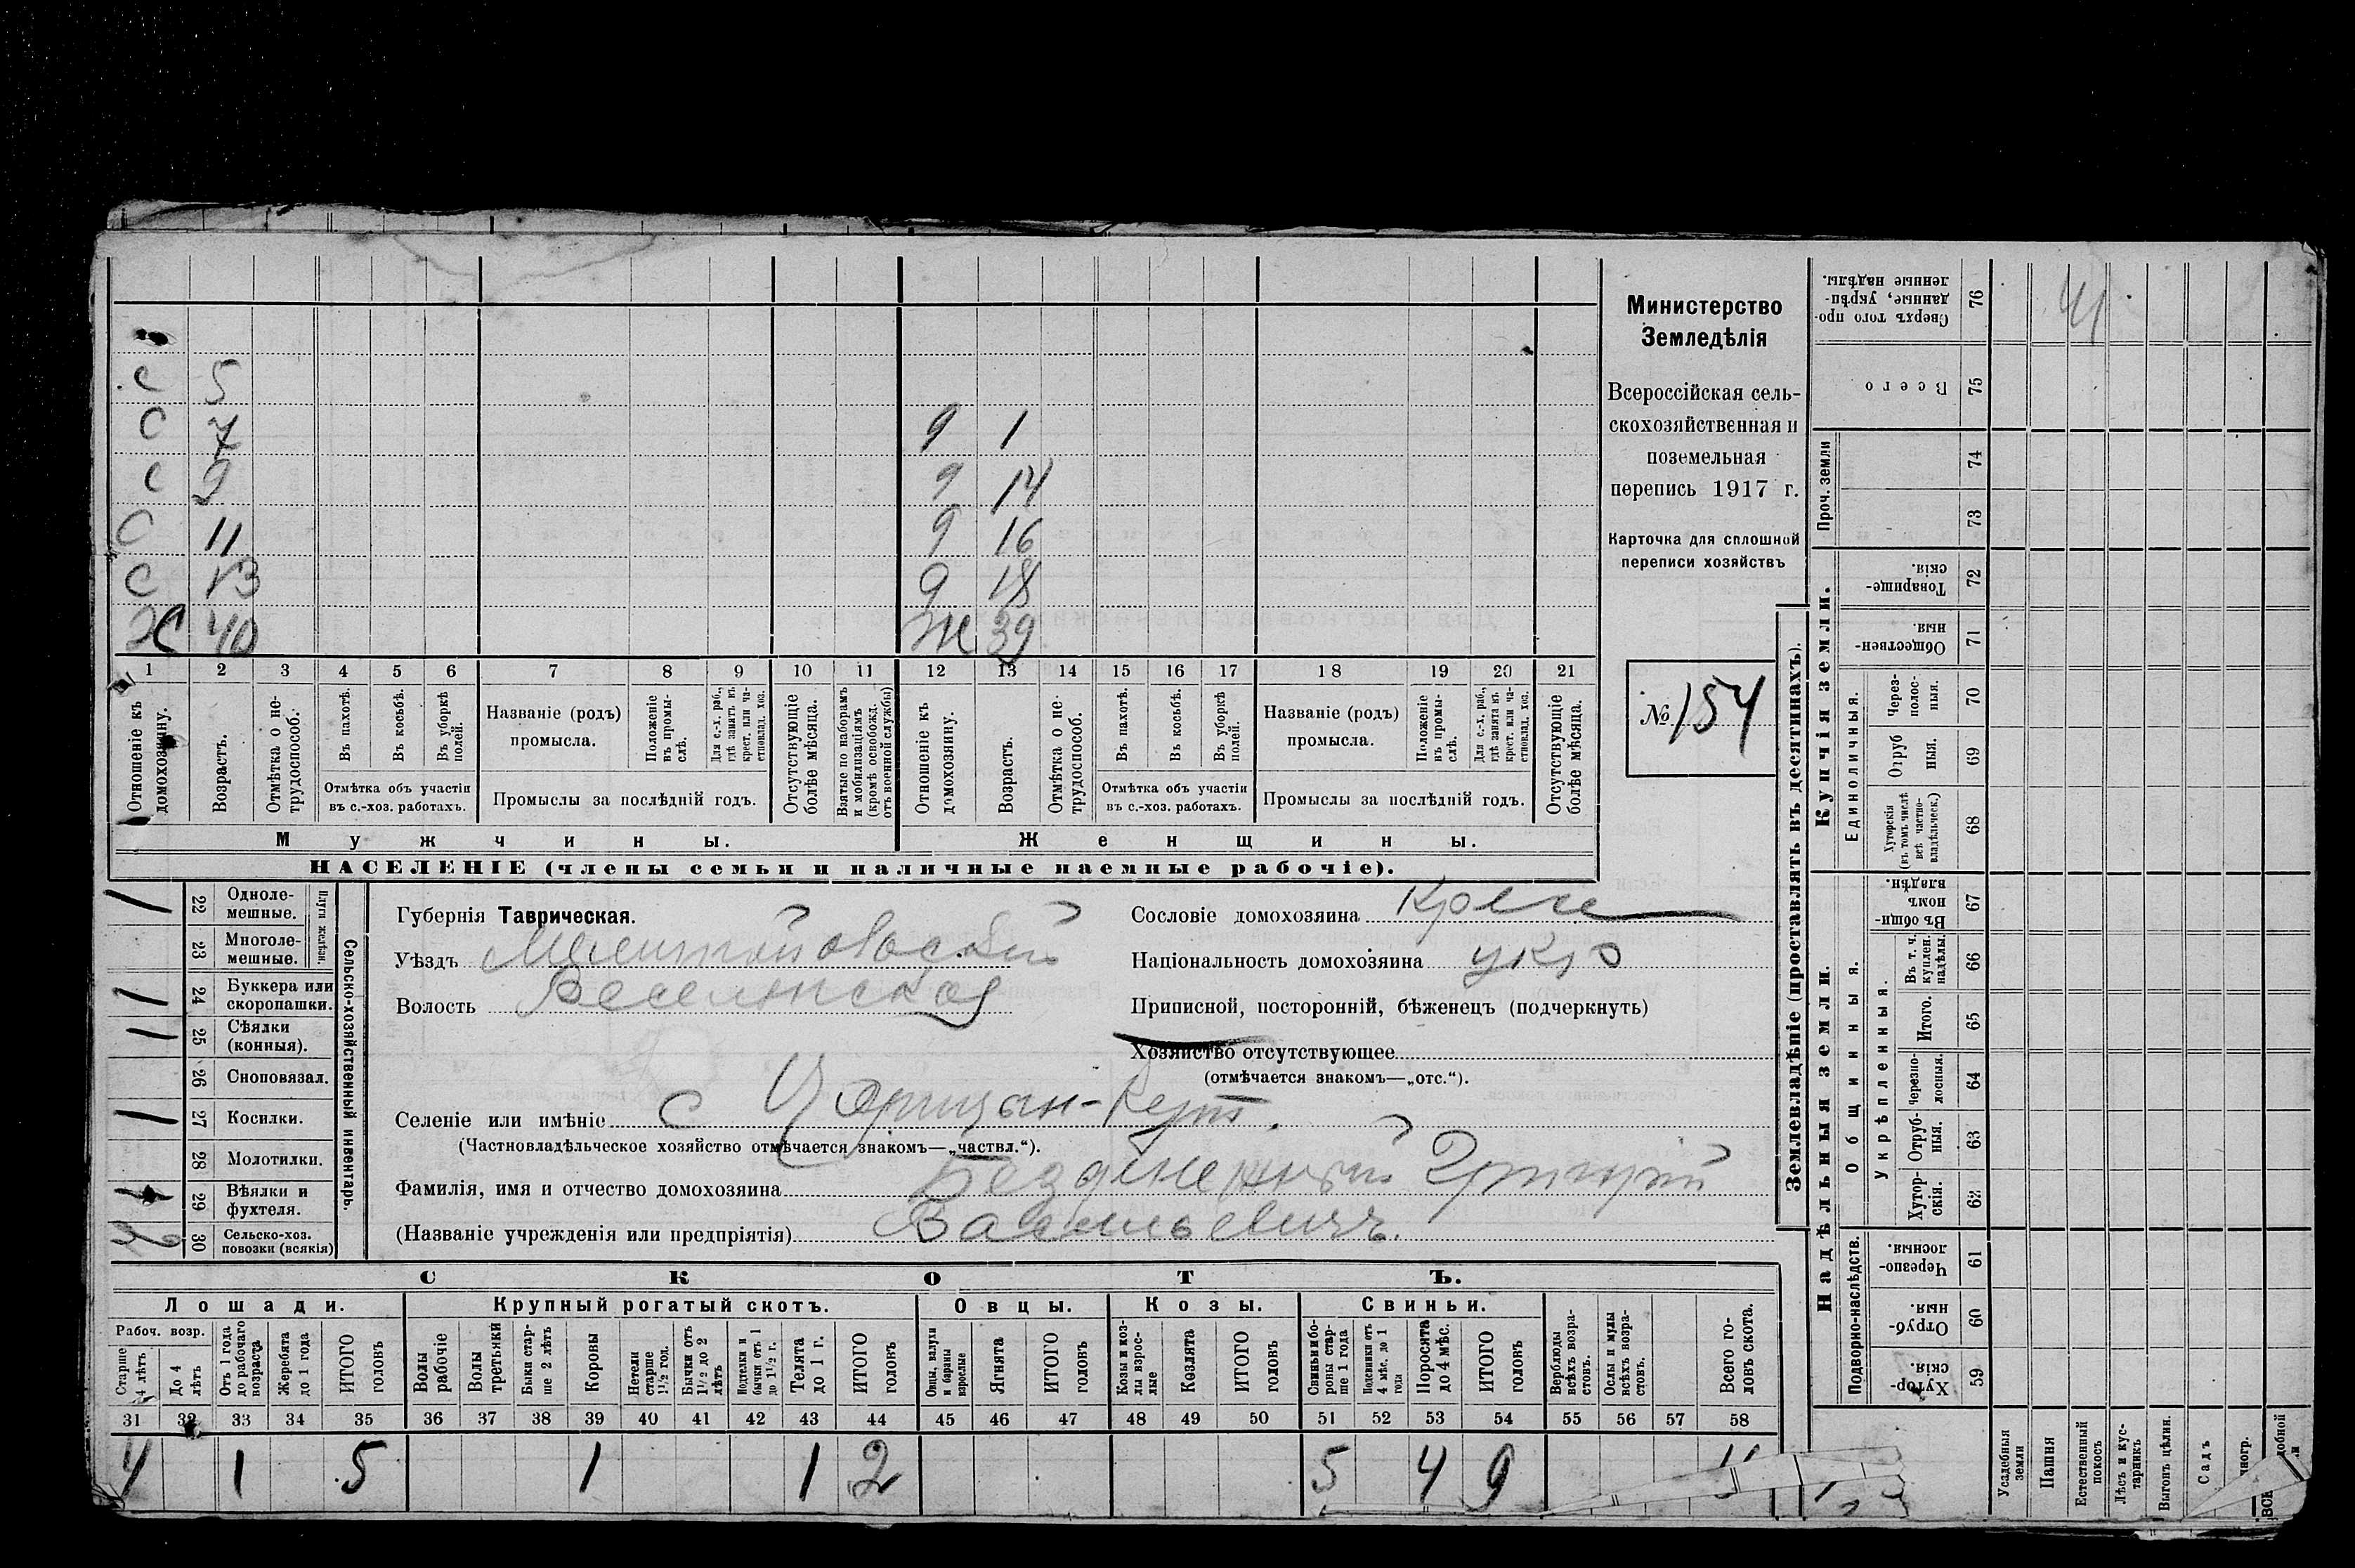 с 5
с 7 д 1
с 9 д 14
с 11 д 16
с 13 д 18
х 40 ж 39
1 2 3 4 5 6 7 8 9 10 11 12 13 14 15 16 17 18 19 20 21
Отношеніе къ домохозяину.
Возрастъ.
Отмѣтка о не-трудоспособ.
Въ пахотѣ.
Въ косьбѣ.
Въ уборкѣ полей.
Отмѣтка объ участіи въ с.-хоз. работахъ.
Названіе (родъ) промысла.
Положеніе въ промы-слѣ.
Для с.-х. раб., гдѣ занятъ въ крест. или ча-стновлад. хоз.
Промыслы за послѣдній годъ.
Отсутствующіе болѣе мѣсяца.
Взятые по наборамъ и мобилизаціямъ (кромѣ освобожд. отъ военной службы)
Отношеніе къ домохозяину.
Возрастъ.
Отмѣтка о не-трудоспособ.
Въ пахотѣ.
Въ косьбѣ.
Въ уборкѣ полей.
Отмѣтка объ участіи въ с.-хоз. работахъ.
Названіе (родъ) промысла.
Положеніе въ промы-слѣ.
Для с.-х. раб., гдѣ занята въ крест. или ча-стновлад. хоз.
Промыслы за послѣдній годъ.
Отсутствующіе болѣе мѣсяца.
Мужчины.
Женщины.
НАСЕЛЕНІЕ (члены семьи и наличные наемные рабочіе).
Министерство
Земледѣлія
Всероссійская сель-
скохозяйственная и
поземельная
перепись 1917 г.
Карточка для сплошной
переписи хозяйствъ
№ 154
Сельско-хозяйственный инвентарь.
Плуги желѣзн.
1 22 Одноле-мешные.
23 Многоле-мешные.
1 24 Буккера или скоропашки.
1 25 Сѣялки (конныя).
26 Сноповязал.
1 27 Косилки.
28 Молотилки.
1 29 Вѣялки и фухтеля.
30 Сельско-хоз. повозки (всякія)
Губернія Таврическая.
Уѣздъ Мелитопольскій
Волость Веселянская
Сословіе домохозяина Крест
Національность домохозяина укр
Приписной, посторонній, бѣженецъ (подчеркнуть)
Хозяйство отсутствующее
(отмѣчается знакомъ—„отс.“).
Селеніе или имѣніе с Царицын-Кутъ.
(Частновладѣльческое хозяйство отмѣчается знакомъ—„частвл.“).
Фамилія, имя и отчество домохозяина Безденежный Григорій
(Названіе учрежденія или предпріятія) Васильевичъ.
СКОТЪ.
Лошади. Крупный рогатый скотъ. Овцы. Козы. Свиньи.
Рабоч. возр.
Старше 4 лѣтъ
До 4 лѣтъ
Отъ 1 года до рабочаго возраста
Жеребята до 1 года
ИТОГО головъ
Волы рабочіе
Волы третьяки
Быки стар-ше 2 лѣтъ
Коровы
Нетели старше 1½ год.
Бычки отъ 1½ до 2 лѣтъ
Подтелки и бычки отъ 1 до 1½ г.
Телята до 1 г.
ИТОГО головъ
Овцы, валухи и бараны взрослые
Ягнята
ИТОГО головъ
Козы и коз-лы взрос-лые
Козлята
ИТОГО головъ
Свиньи и бо-ровы стар-ше 1 года
Подсвинки отъ 4 мѣс. до 1 года
Поросята до 4 мѣс.
ИТОГО головъ
Верблюды всѣхъ возра-стовъ.
Ослы и мулы всѣхъ возра-стовъ.
Всего го-ловъ скота.
31 32 33 34 35 36 37 38 39 40 41 42 43 44 45 46 47 48 49 50 51 52 53 54 55 56 57 58
4 1 5 1 1 2 5 4 9
Землевладѣніе (проставлять въ десятинахъ).
Надѣльныя земли.
Купчія земли.
Проч. земли
Подворно-наслѣдств.
Общинныя.
Укрѣпленныя.
Единоличныя.
Сверхъ того про-данные, укрѣп-ленные надѣлы. 76 41
Всего 75
74
73
Товарище-скія. 72
Обществен-ныя. 71
Через-полос-ныя. 70
Отруб-ныя. 69
Хуторскія (въ томъ числѣ всѣ частно-владѣльческ.) 68
Въ общи-номъ владѣн. 67
Въ т. ч. куплен. надѣлы. 66
Итого. 65
Черезпо-лосныя. 64
Отруб-ныя. 63
Хутор-скія. 62
Черезпо-лосныя. 61
Отруб-ныя. 60
Хутор-скія. 59
Усадебныя земли
Пашня
Естественный покосъ
Лѣсъ и кус-тарникъ
Выгонъ цѣлин.
Садъ